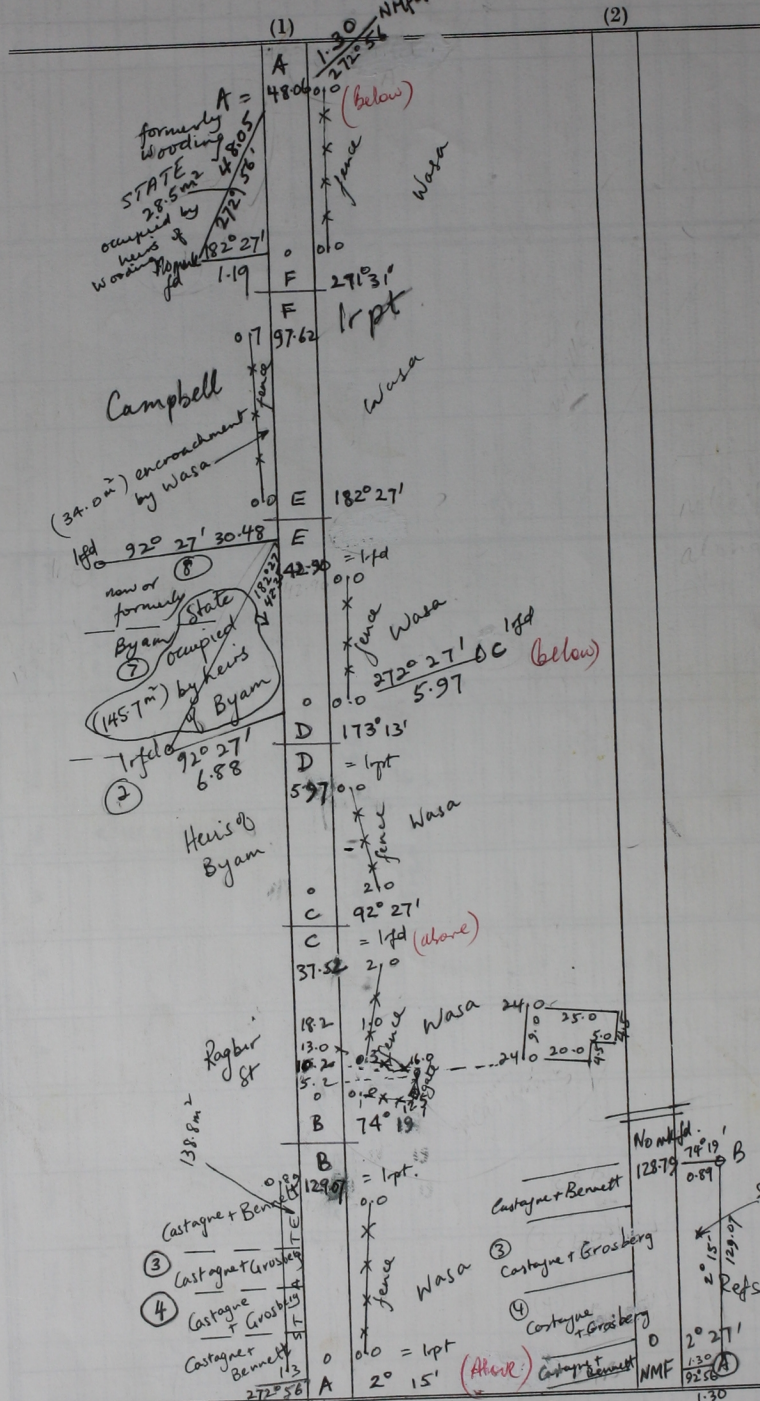 (1)
(2)
1.30
272° 56'
A
A =
48.06
0.0
(below)
formerly
Wooding
STATE
28.5m²
occupied by
heirs of
Wooding
48.05
272° 56'
fence
Wasa
182° 27'
1.19
0
0.0
F
291° 31'
F
1rpt
0.7
97.62
Campbell
fence
Wasa
(34.0m²) encroachment
by Wasa
0.0
E
182° 27'
1rfd
92° 27' 30.48
E
8
42.90
= 1rfd
now or
formerly
Byam
7
State
occupied
by heirs
of
Byam
(145.7m²)
182° 27'
0.0
fence
Wasa
272° 27'
5.97
C
1rfd
(below)
0
0.0
D
173° 13'
1rfd
92° 27'
6.88
2
D
= 1rpt
5.97
0.0
Heirs of
Byam
fence
Wasa
0
2.0
C
92° 27'
C
= 1rfd
(above)
37.52
2.0
Ragbir
St
18.2
1.0
13.0
10.2
5.2
0
fence
Wasa
gate
24.0
25.0
9.0
5.0
4.5
24.0
20.0
4.5
B
74° 19'
138.8m²
B
129.07
= 1rpt.
0.0
STATE
Castagne + Bennett
3
Castagne + Grosberg
4
Castagne
+ Grosberg
Castagne +
Bennett
fence
Wasa
1.3
0
0.0
= 1rpt
272° 56'
A
2° 15'
(Above)
No mk fd.
128.79
74° 19'
0.89
B
Castagne + Bennett
3
Castagne + Grosberg
4
Castagne
+ Grosberg
Castagne +
Bennett
2° 15'
129.07
Refs
0
2° 27'
NMF
1.30
92° 56'
A
1.30